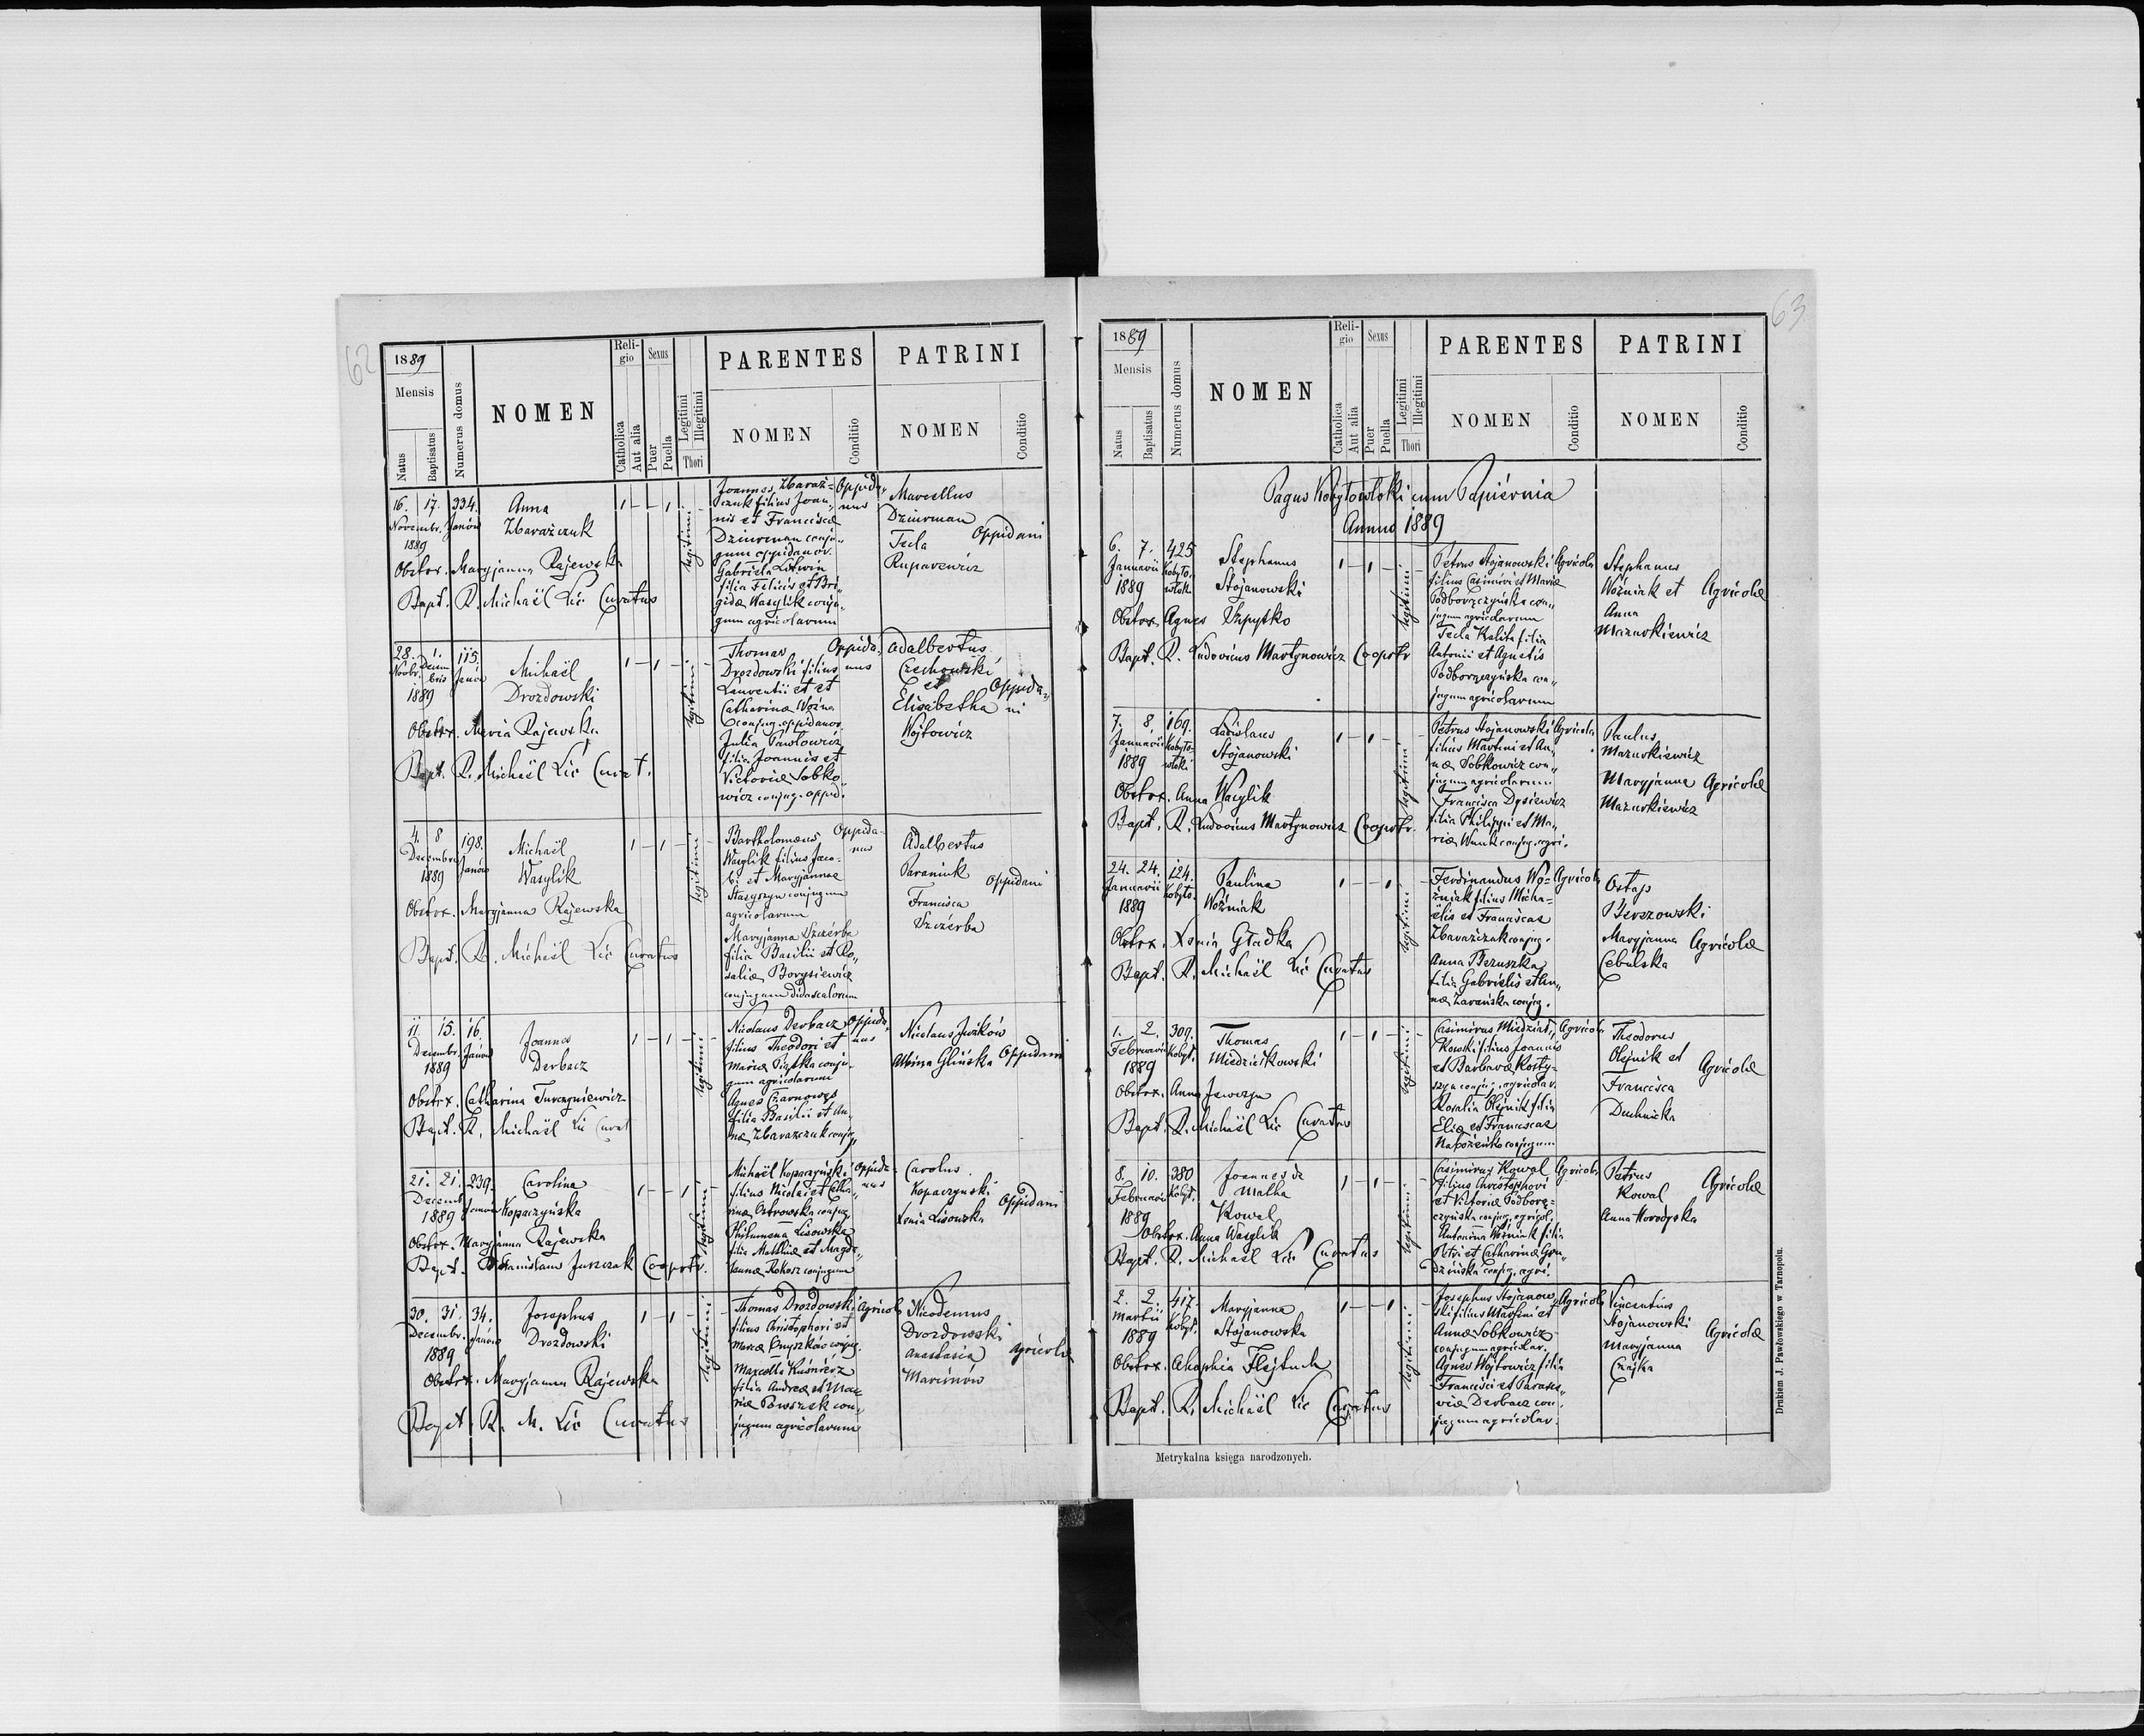 62
1889
Mensis
Natus
Baptisatus
Numerus domus
NOMEN
Religio
Catholica
Aut alia
Sexus
Puer
Puella
Legitimi
Illegitimi
Thori
PARENTES
NOMEN
Conditio
PATRINI
NOMEN
Conditio
16. 17. 334.
Novembr. Janów
1889
Anna
Zbarażczuk
Obstor. Maryjanna Rajewska
Bapt. R. Michaël Lić Curatus
legitimi
Joannes Zbaraż-
czuk filius Joan-
nis et Francisca
Dziurman conju-
gum oppidanor.
Gabriela Litwin
filia Felicis et Bri-
gida Wasylik conju-
gum agricolarum
Oppida-
nus
Marcellus
Dziurman
Tecla
Ruparewicz
Oppidani
28. 1. 115.
Novbr. Decem- Janów
bris
1889
Michaël
Drozdowski
Obstr. Maria Rajewska
Bapt. R. Michaël Lić Curat.
legitimi
Thomas
Drozdowski filius
Laurentii et et
Catharina Woźna
conjug. oppidanor.
Julia Pawłowicz
filia Joannis et
Victoria Sobko-
wicz conjug. oppid.
Oppida-
nus
Adalbertus
Czechowski
et
Elisabetha
Wójtowicz
Oppida-
ni
4. 8 198.
Decembris Janów
1889
Michaël
Wasylik
Obstrx. Maryjanna Rajewska
Bapt. R. Michaël Lić Curatus
legitimi
Bartholomæus
Wasylik filius Jaco-
bi et Maryjanna
Stasyszyn conjugum
agricolarum
Maryjanna Szczérba
filia Basilii et Ro-
salia Borysiewicz
conjugum didascalorum
Oppida-
nus
Adalbertus
Paraniuk
Francisca
Szczérba
Oppidani
11. 15. 16.
Decembr. Janów
1889
Joannes
Derbacz
Obstrx. Catharina Turczyniewicz
Bapt. R. Michaël Lić Curat
legitimi
Nicolaus Derbacz
filius Theodori et
Maria Piątka conju-
gum agricolarum
Agnes
filia Basilii et An-
na Zbarażczuk conjug.
Oppida-
nus
Nicolaus Juzków
Albina Glińska
Oppidani
21. 21. 239.
Decemb. Janów
1889
Carolina
Kopaczyńska
Obstrx. Maryjanna Rajewska
Bapt. Stanislaus Juszczak Cooprtr.
legitimi
Michaël Kopaczyński
filius Nicolai et Catha-
rina Ostrowska conjug.
Philumena Lisowska
filia Mathia et Magda-
lenna Rokosz conjugum
Oppida-
nus
Carolus
Kopaczynski
Xenia Lisowska
Oppidani
30. 31. 34.
Decembr. Janów
1889
Josephus
Drozdowski
Obstrx. Maryjanna Rajewska
Bapt. R. M. Lić Curatus
legitimi
Thomas Drozdowski
filius Christophori et
Maria conjug.
Marcella Kuśniérz
filia Andrea et Ma-
ria con-
jugum agricolarum
Agricola
Nicodemus
Drozdowski
Anastasia
Marcinów
Agricolæ
63
1889
Mensis
Natus
Baptisatus
Numerus domus
NOMEN
Religio
Catholica
Aut alia
Sexus
Puer
Puella
Legitimi
Illegitimi
Thori
PARENTES
NOMEN
Conditio
PATRINI
NOMEN
Conditio
Pagus Kobyłowłoki cum Papiérnia
Anno 1889
6. 7. 425
Januarii Kobyło-
1889 włok
Stephanus
Stojanowski
Obstrx. Agnes Szpytko
Bapt. R. Ludovicus Martynowicz Cooprtr
legitimi
Petrus Stojanowski
filius Casimiri et Maria
Podborzczyńska con-
jugum agricolarum
Tecla Kalita filia
Antonii et Agnetis
Podborzczyńska con-
jugum agricolarum
Agricola
Stephanus
Woźniak et
Anna
Mazurkiewicz
Agricolæ
7. 8. 169.
Januarii Kobyło-
1889 włoki
Ladislaus
Stojanowski
Obstrx. Anna Wasylik
Bapt. R. Ludovicus Martynowicz Cooprtr.
legitimi
Petrus Stojanowski
filius Martini et An-
na Sobkowicz con-
jugum agricolarum
Francisca Dysiewicz
filia Philippi et Ma-
ria Wnuk conjug. agri.
Agricola
Paulus
Mazurkiewicz
Maryjanna
Mazurkiewicz
Agricolæ
24. 24. 124.
Januarii Kobyło.
1889
Paulina
Woźniak
Obstrx. Xenia Gładka
Bapt. R. Michaël Lić Curatus
legitimi
Ferdinandus Wo-
źniak filius Micha-
ëlis et Francisca
Zbarażczuk conjug.
Anna Bezuszka
filia Gabrielis et An-
na Zarańska conjug.
Agricola
Ostap
Berezowski
Maryjanna
Cebulska
Agricolæ
1. 2. 309.
Februarii Kobył.
1889
Thomas
Miedzińkowski
Obstrx. Anna Jaworzyn
Bapt. R. Michaël Lić Curatus
legitimi
filius Joannis
et Barbara Kosty-
szyn conjug. agricolar.
Rosalia Olejnik filia
Elia et Francisca
conjugum
Agricola
Theodorus
Olejnik et
Francisca
Duchnicka
Agricolæ
8. 10. 380
Februarii Kobył.
1889
Joannes de
Matha
Kowal
Obstrx. Anna Wasylik
Bapt. R. Michaël Lić Curatus
legitimi
Casimirus Kowal
filius Christophori
et Victoria Podborz-
czyńska conjug. agricol.
Antonina Woźniak filia
Petri et Catharina Gon-
dzińska conjug. agri.
Agricola
Petrus
Kowal
Anna Horodyska
Agricolæ
2. 2. 417.
Martii Kobył.
1889
Maryjanna
Stojanowska
Obstrx. Ahaphia Flejtuch
Bapt. R. Michaël Lić Curatus
legitimi
Josephus Stojanow-
ski filius Martini et
Anna Sobkowicz
conjugum agricolar.
Agnes Wójtowicz filia
Francisci et Parasce-
via Derbacz con-
jugum agricolar.
Agricola
Vincentius
Stojanowski
Maryjanna
Czajka
Agricolæ
Metrykalna księga narodzonych.
Drukiem J. Pawłowskiego w Tarnopolu.